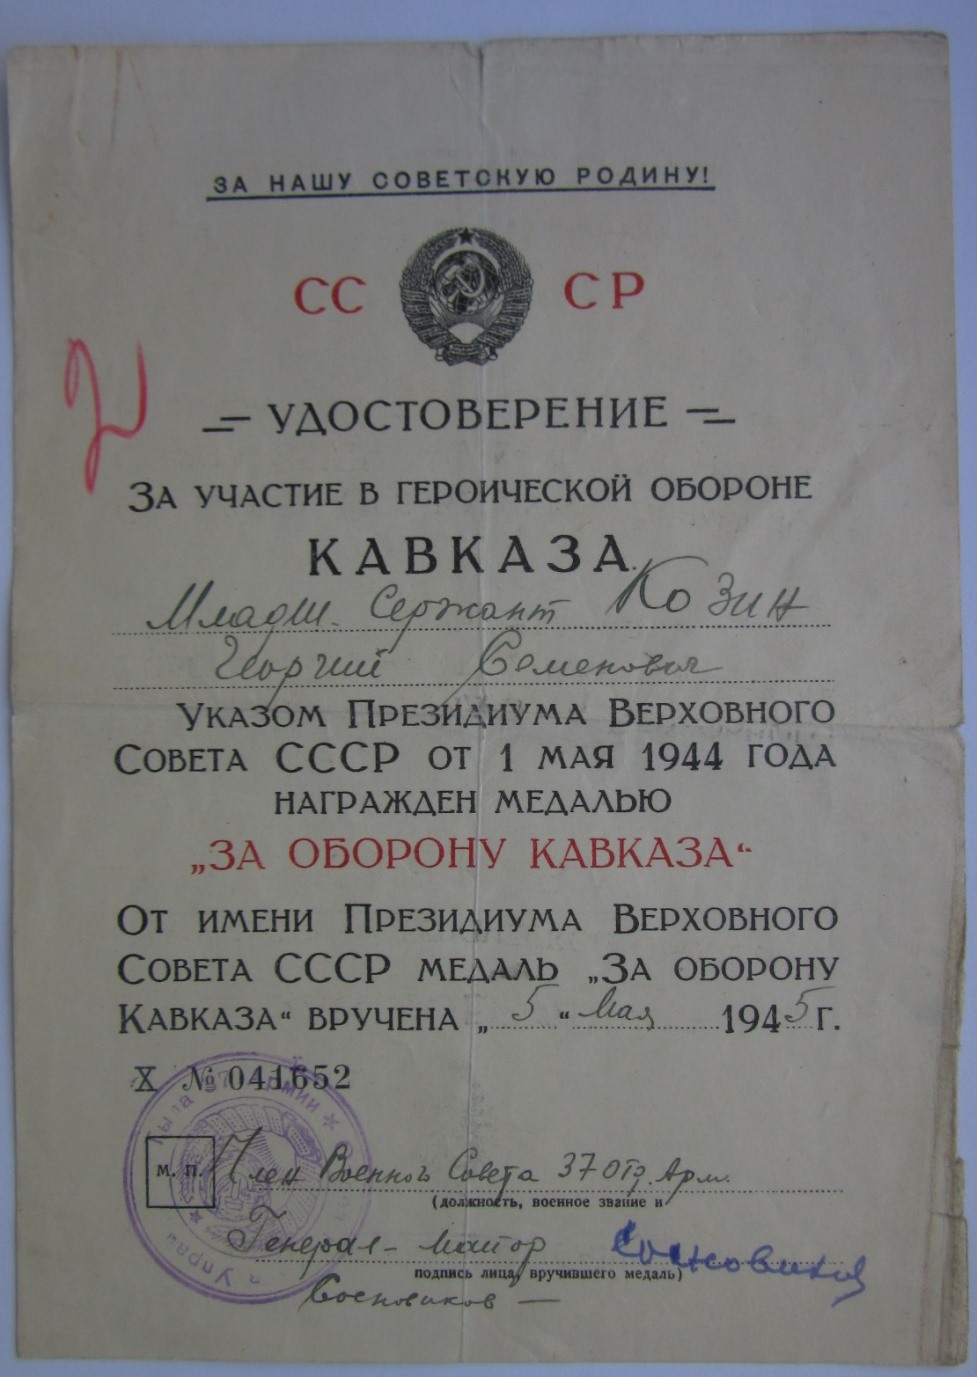 ЗА НАШУ СОВЕТСКУЮ РОДИНУ!
СС СР
УДОСТОВЕРЕНИЕ
ЗА УЧАСТИЕ В ГЕРОИЧЕСКОЙ ОБОРОНЕ
КАВКАЗА
Младш. Сержант Козин
Георгий Семенович
УКАЗОМ ПРЕЗИДИУМА ВЕРХОВНОГО
СОВЕТА СССР ОТ 1 МАЯ 1944 ГОДА
НАГРАЖДЕН МЕДАЛЬЮ
„ЗА ОБОРОНУ КАВКАЗА“
ОТ ИМЕНИ ПРЕЗИДИУМА ВЕРХОВНОГО
СОВЕТА СССР МЕДАЛЬ „ЗА ОБОРОНУ
КАВКАЗА“ ВРУЧЕНА „5“ Мая 1945 Г.
X № 041652
м. п. Член Военног Совета 37 Отд. Арм.
(должность, военное звание и
Генерал-майор Сосновиков
подпись лица, вручившего медаль)
Сосновиков